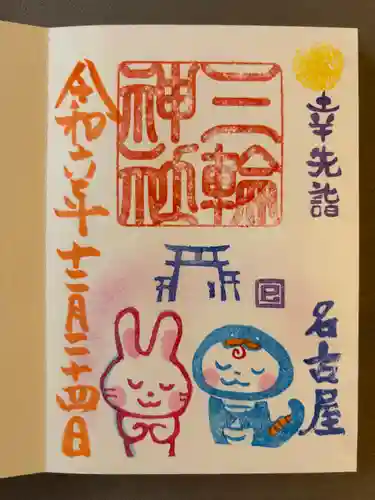 幸先詣
名古屋
三輪
神社
令和六年十二月二十四日